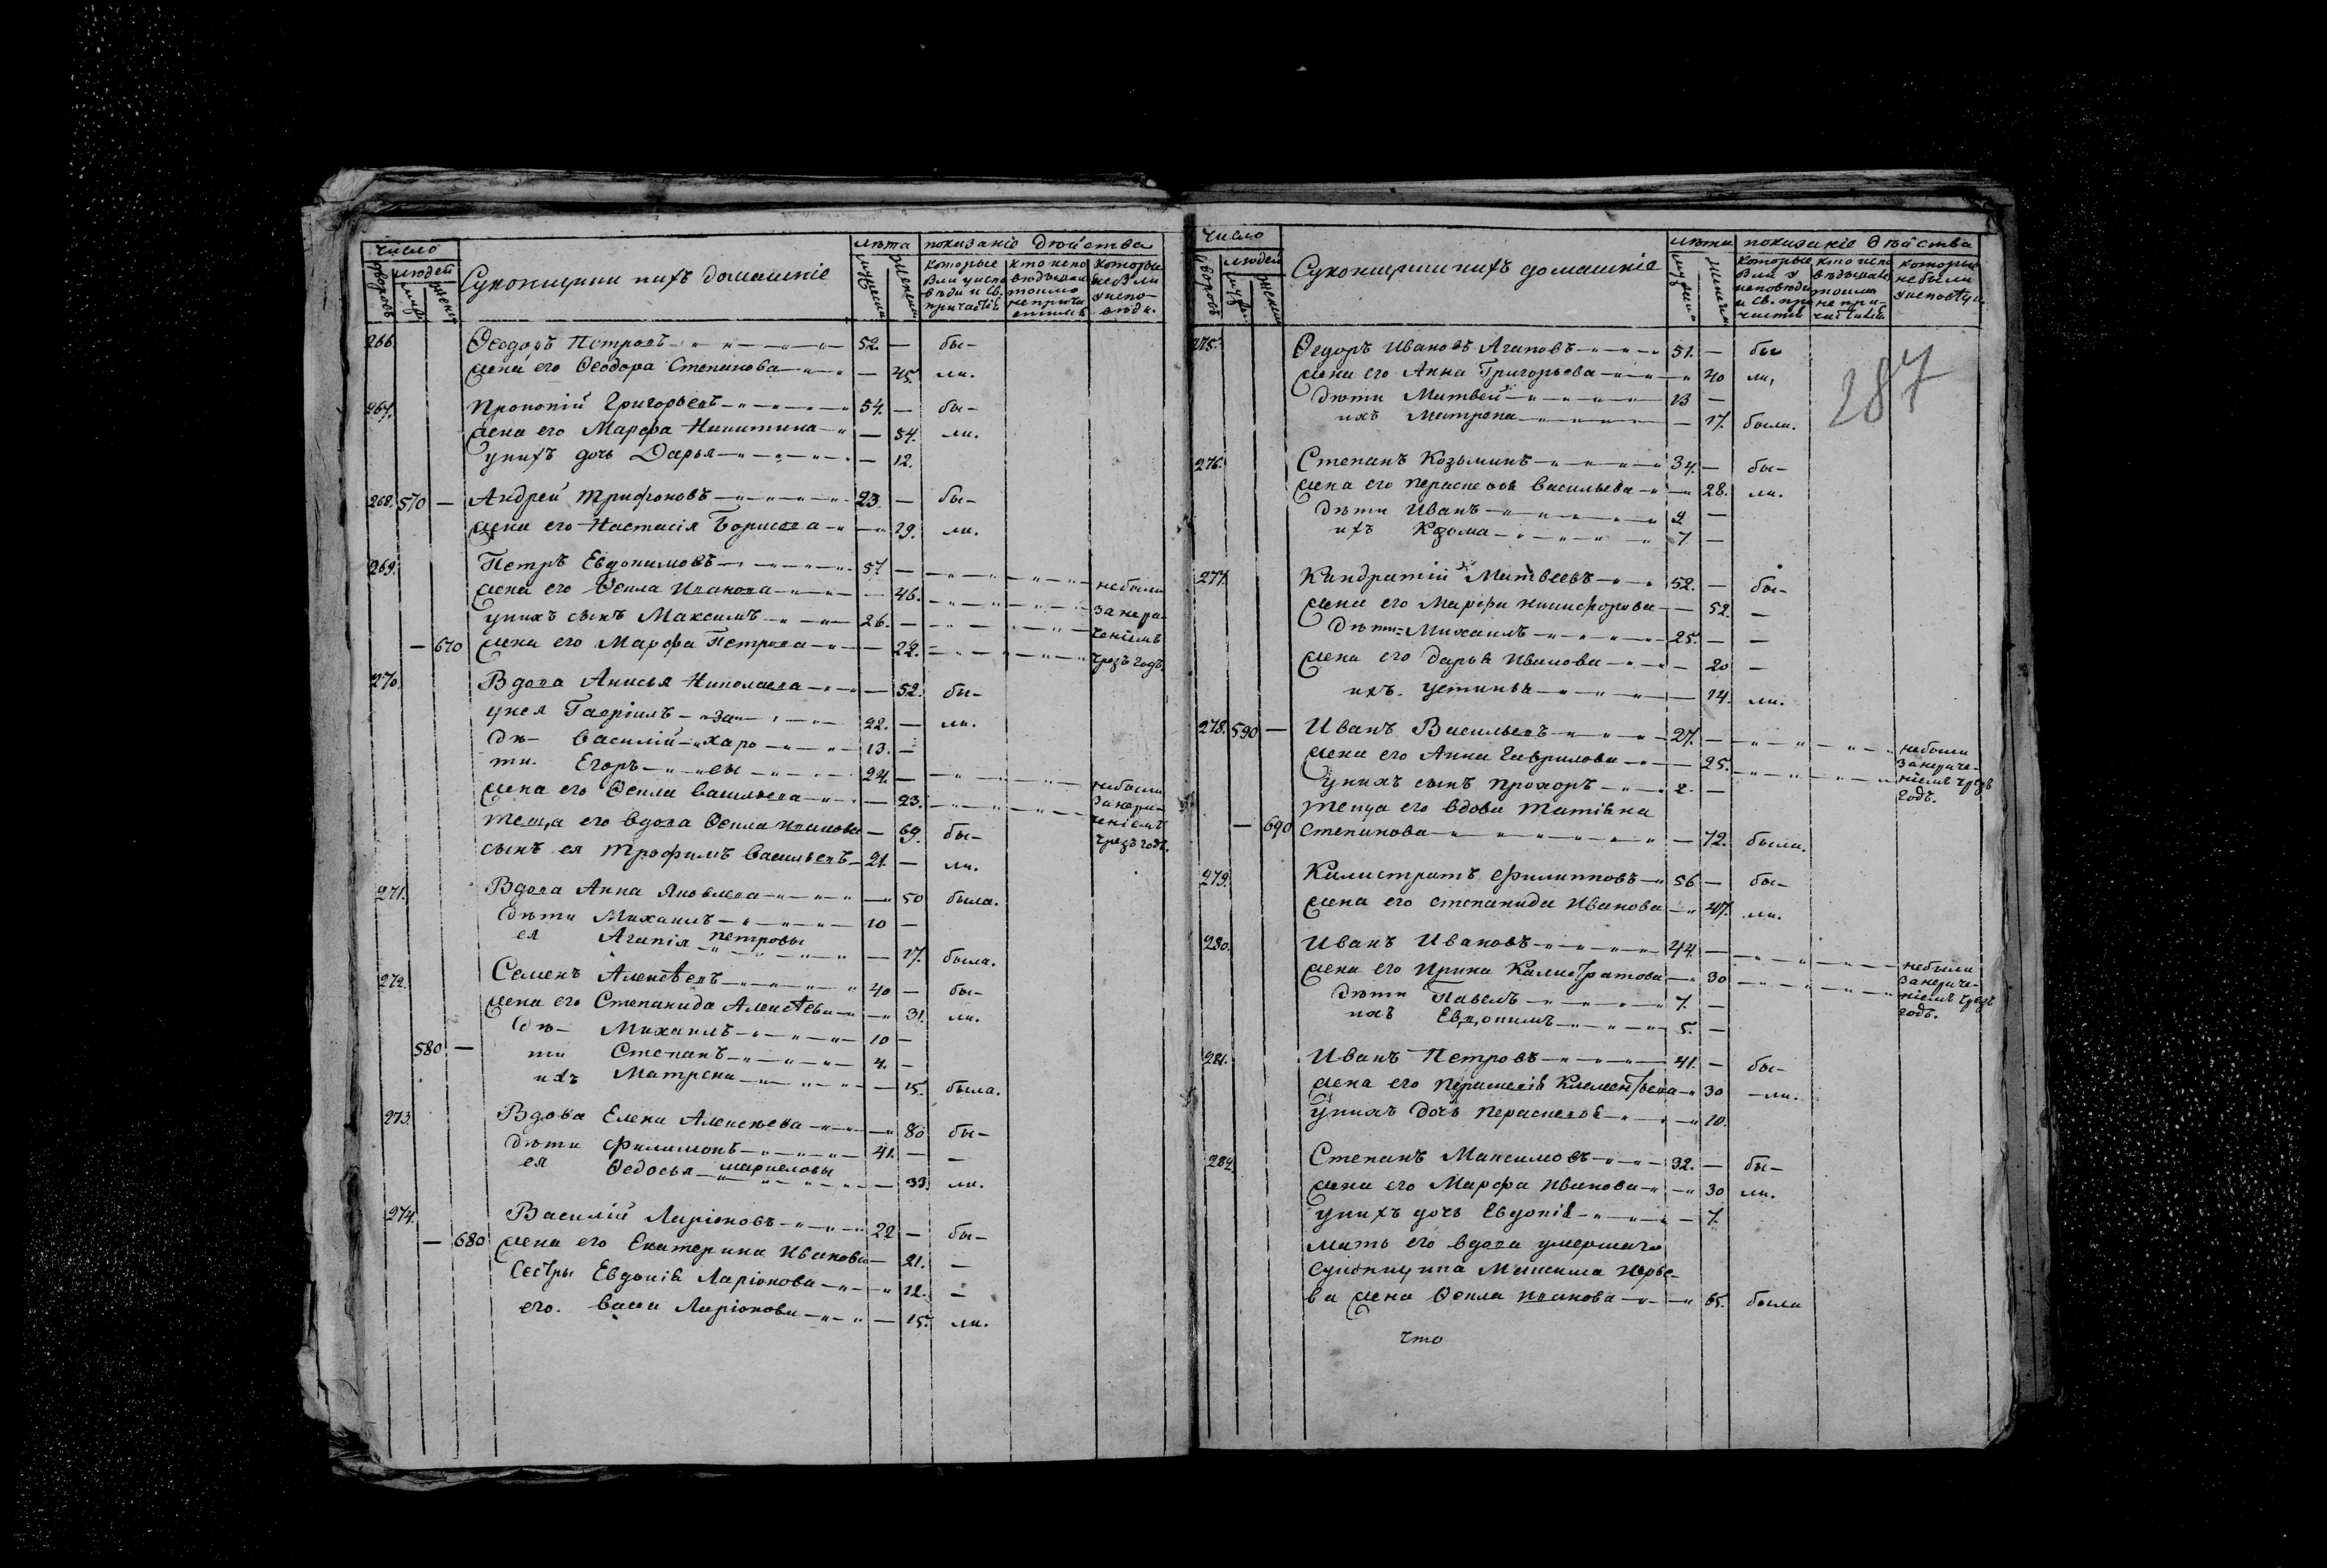 число
людей
Суконщики и ихъ домашніе
лѣта
показаніе дѣйства
266. Ѳеодоръ Петровъ 52. — бы-
жена его Ѳеодора Степанова — 45. ли.
267. Прокопій Григорьевъ 54. — бы-
жена его Марѳа Никитина — 54. ли.
у нихъ дочь Дарья — 12.
268. 570 — Андрей Трифоновъ 23 — бы-
жена его Настасія Борисова — 29. ли.
269. Петръ Евдокимовъ 57. — небыли
жена его Ѳекла Иванова — 46. за нера-
у нихъ сынъ Максимъ 26. — ченіемъ
— 670 жена его Марѳа Петрова — 22. чрезъ годъ.
270. Вдова Анисья Николаева — 52. бы-
у нея Гавріилъ — за 22. — ли.
дѣ- Василій — харо 13. —
ти. Егоръ — вы 24. — небыли
жена его Ѳекла Васильева — 23. за нера-
теща его вдова Ѳекла Иванова — 69. бы- ченіемъ
сынъ ея Трофимъ Васильевъ — 21. — ли. чрезъ годъ.
271. Вдова Анна Яковлева — 50 была.
дѣти Михаилъ 10 —
ея Агапія Петровы — 17. была.
272. Семенъ Алексѣевъ 40 — бы-
жена его Степанида Алексѣева — 31. ли.
дѣ- Михаилъ 10 —
580 — ти Степанъ 4. —
ихъ Матрена — 15. была.
273. Вдова Елена Алексѣева — 80 бы-
дѣти Филимонъ 41. — —
ея Ѳедосья Маркеловы — 33. ли.
274. Василій Ларіоновъ 22 — бы-
— 680 жена его Екатерина Иванова — 21. —
Сестры Евдокія Ларіонова — 12. —
его. Ларіонова — 15. ли.
число
людей
Суконщики и ихъ домашніе
лѣта
показаніе дѣйства
287
275. Ѳедоръ Ивановъ Агаповъ 51. — бы
жена его Анна Григорьева — 40 ли,
дѣти Матвей 13 —
ихъ Матрена — 17. были.
276. Степанъ Козьминъ 34. — бы-
жена его Параскева Васильева — 28. ли.
дѣти Иванъ 9 —
ихъ Козма 7 —
277. Кандратій Матвеевъ 52. — бы-
жена его Марѳа Никифорова — 52. —
дѣти Михаилъ 25. — —
жена его Дарья Иванова — 20 —
ихъ. Устинья — 14. ли.
278. 590 — Иванъ Васильевъ 27. — небыли
жена его Анна Гаврилова — 25. за нераче-
у нихъ сынъ Прохоръ 2. — ніемъ чрезъ
теща его вдова Татіяна годъ.
— 690 Степанова — 72. была.
279. Калистратъ Филипповъ 56 — бы-
жена его Степанида Иванова — 47. ли.
280. Иванъ Ивановъ 44. — небыли
жена его Ирина Калистратова — 30 за нераче-
дѣти Павелъ 7. — ніемъ чрезъ
ихъ Евдокимъ 5. — годъ.
281. Иванъ Петровъ 41. — бы-
жена его Параскевія Клементьева 30 — ли.
у нихъ дочь Параскева — 10.
282. Степанъ Максимовъ 32. — бы-
жена его Марѳа Иванова — 30 ли.
у нихъ дочь Евдокія — 7.
мать его вдова умершаго
суконщика Максима Юрье-
ва жена Ѳекла Иванова — 65. была
что